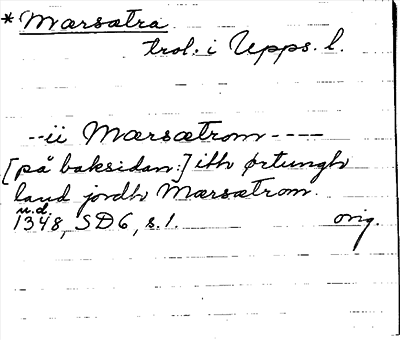 *Mærsætra
trol. i Upps. l.
--ii Mærsætrom----
[på baksidan:] ith ørtungh
land jordh Mærsætrom.
u.d.
1348, SD6, s. 1. orig.